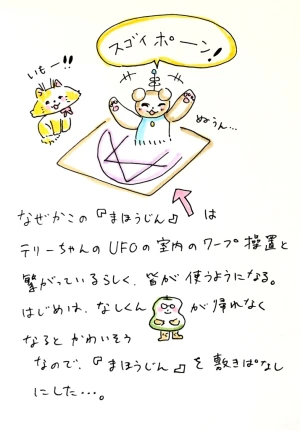 スゴイ ポーン!
いもー!!
めうん…
なぜかこの『まほうじん』は
テリーちゃんのUFOの室内のワープ操置と
繋がっているらしく、皆が使うようになる。
はじめは、なしくんが帰れなく
なると かわいそう
なので、『まほうじん』を敷きぱなし
にした…。